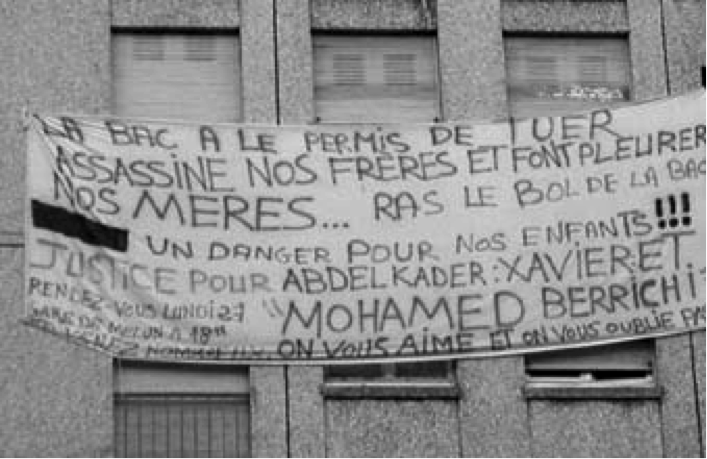 LA BAC A LE PERMIS DE TUER
ASSASSINE NOS FRÈRES ET FONT PLEURER
NOS MERES... RAS LE BOL DE LA BAC
UN DANGER POUR NOS ENFANTS!!!
JUSTICE POUR ABDELKADER: XAVIER ET
RENDEZ-VOUS LUNDI 27 "MOHAMED BERRICHI"
GARE DE MELUN A 18H
VENEZ NOMBREUX. ON VOUS AIME ET ON VOUS OUBLIE PAS